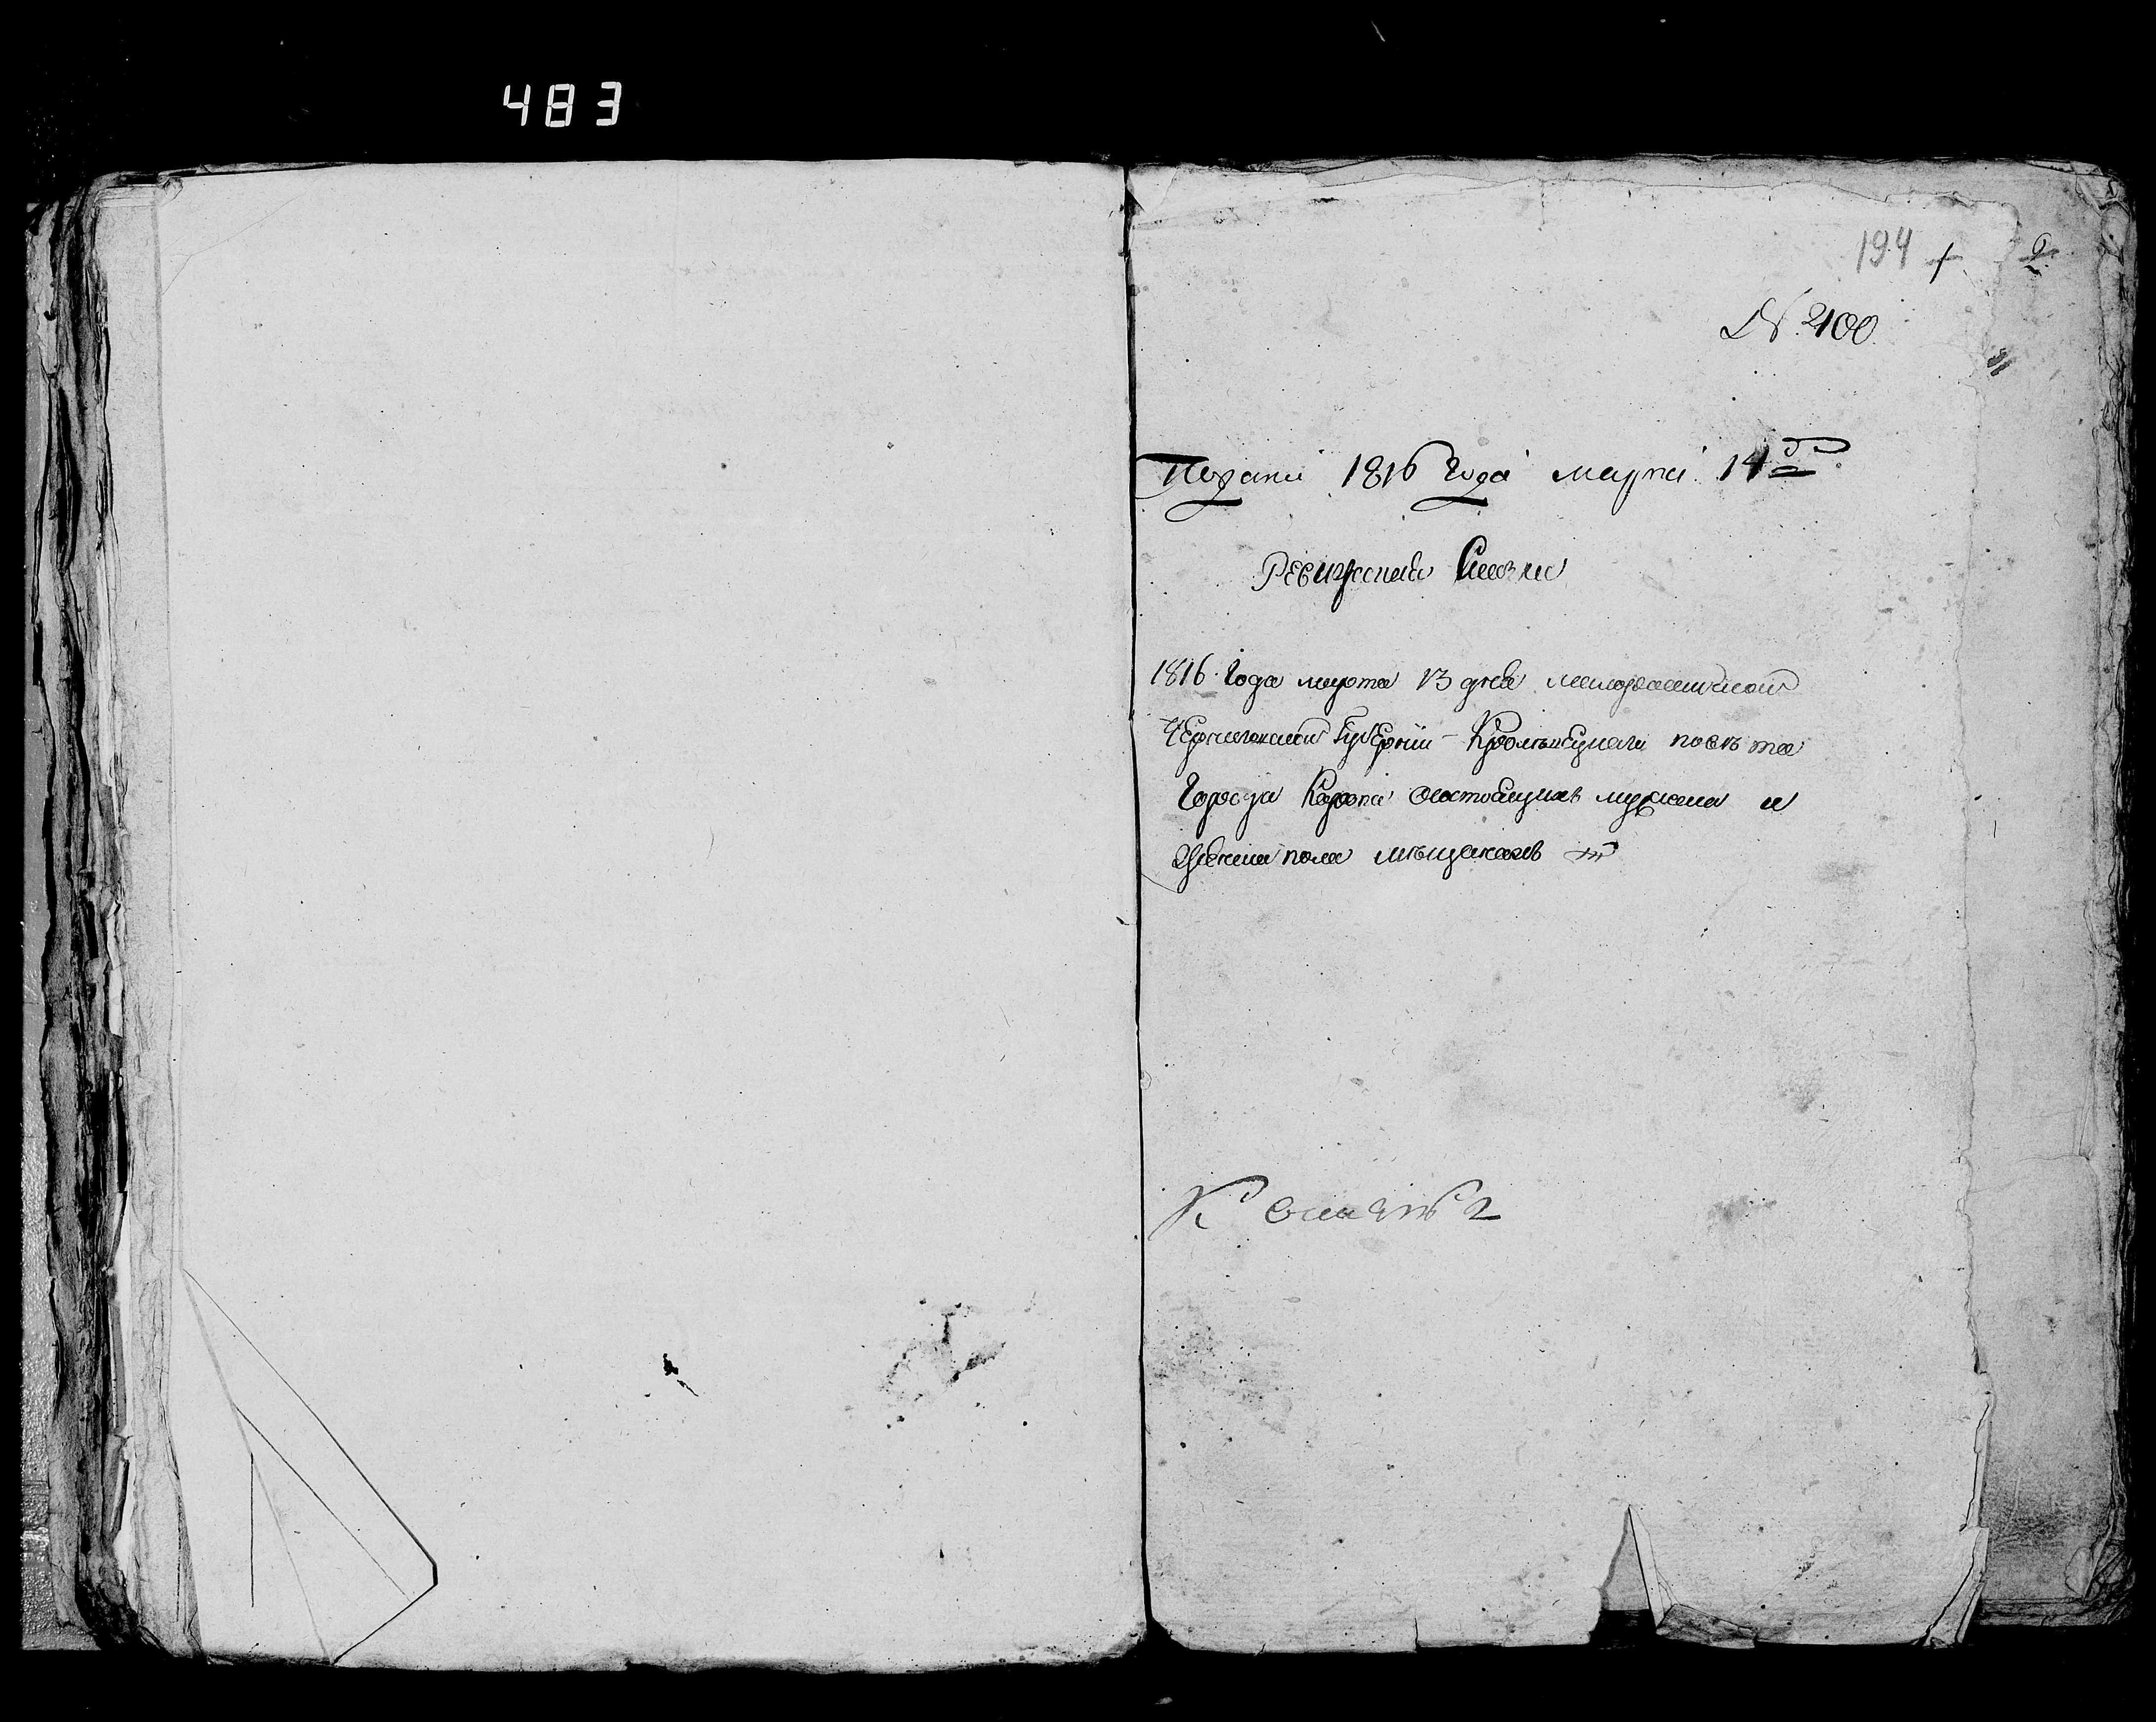 483
194
N. 400
Подана 1816 Года марта 14 д
Ревижская Сказка
1816 Года марта 13 дня малороссийской
Черниговской Губернии Кролевецкаго повѣта
Города Коропа состоящихъ мужеска и
женска пола мѣщанахъ